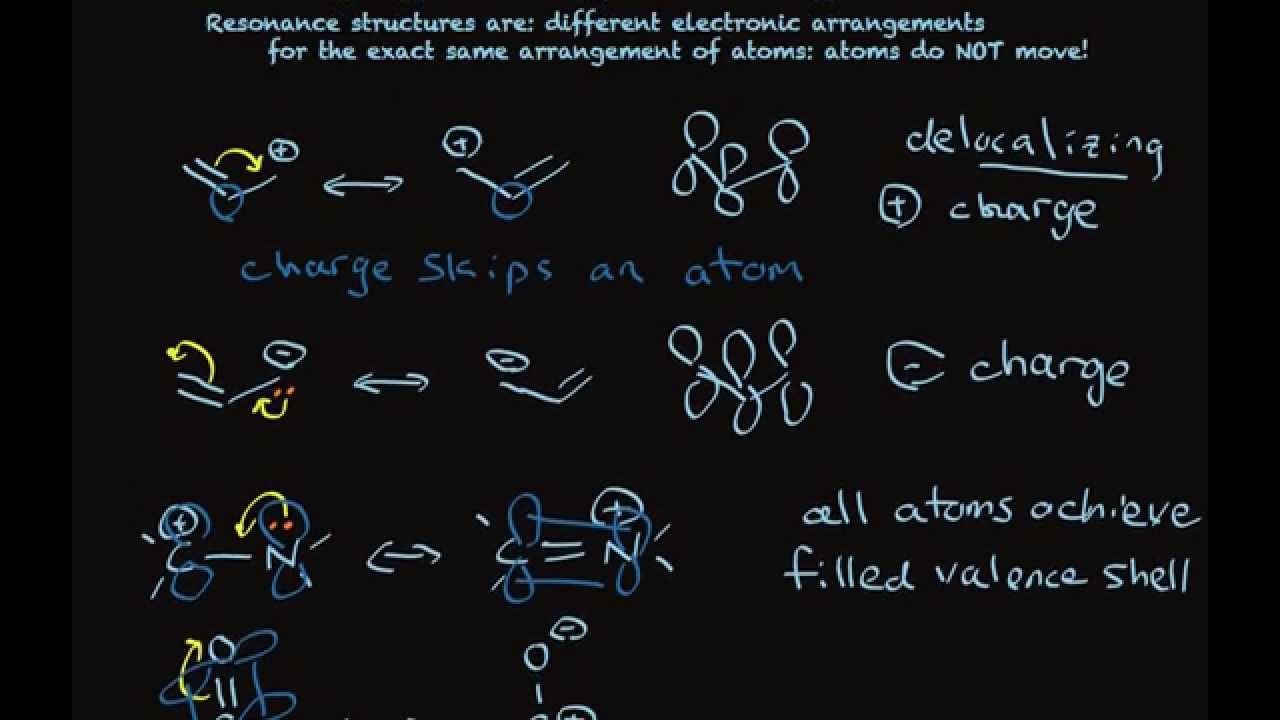 Resonance structures are: different electronic arrangements
for the exact same arrangement of atoms: atoms do NOT move!
+ + delocalizing
+ charge
charge skips an atom
- - - charge
+ C N C N + all atoms achieve
filled valence shell
O O -
+